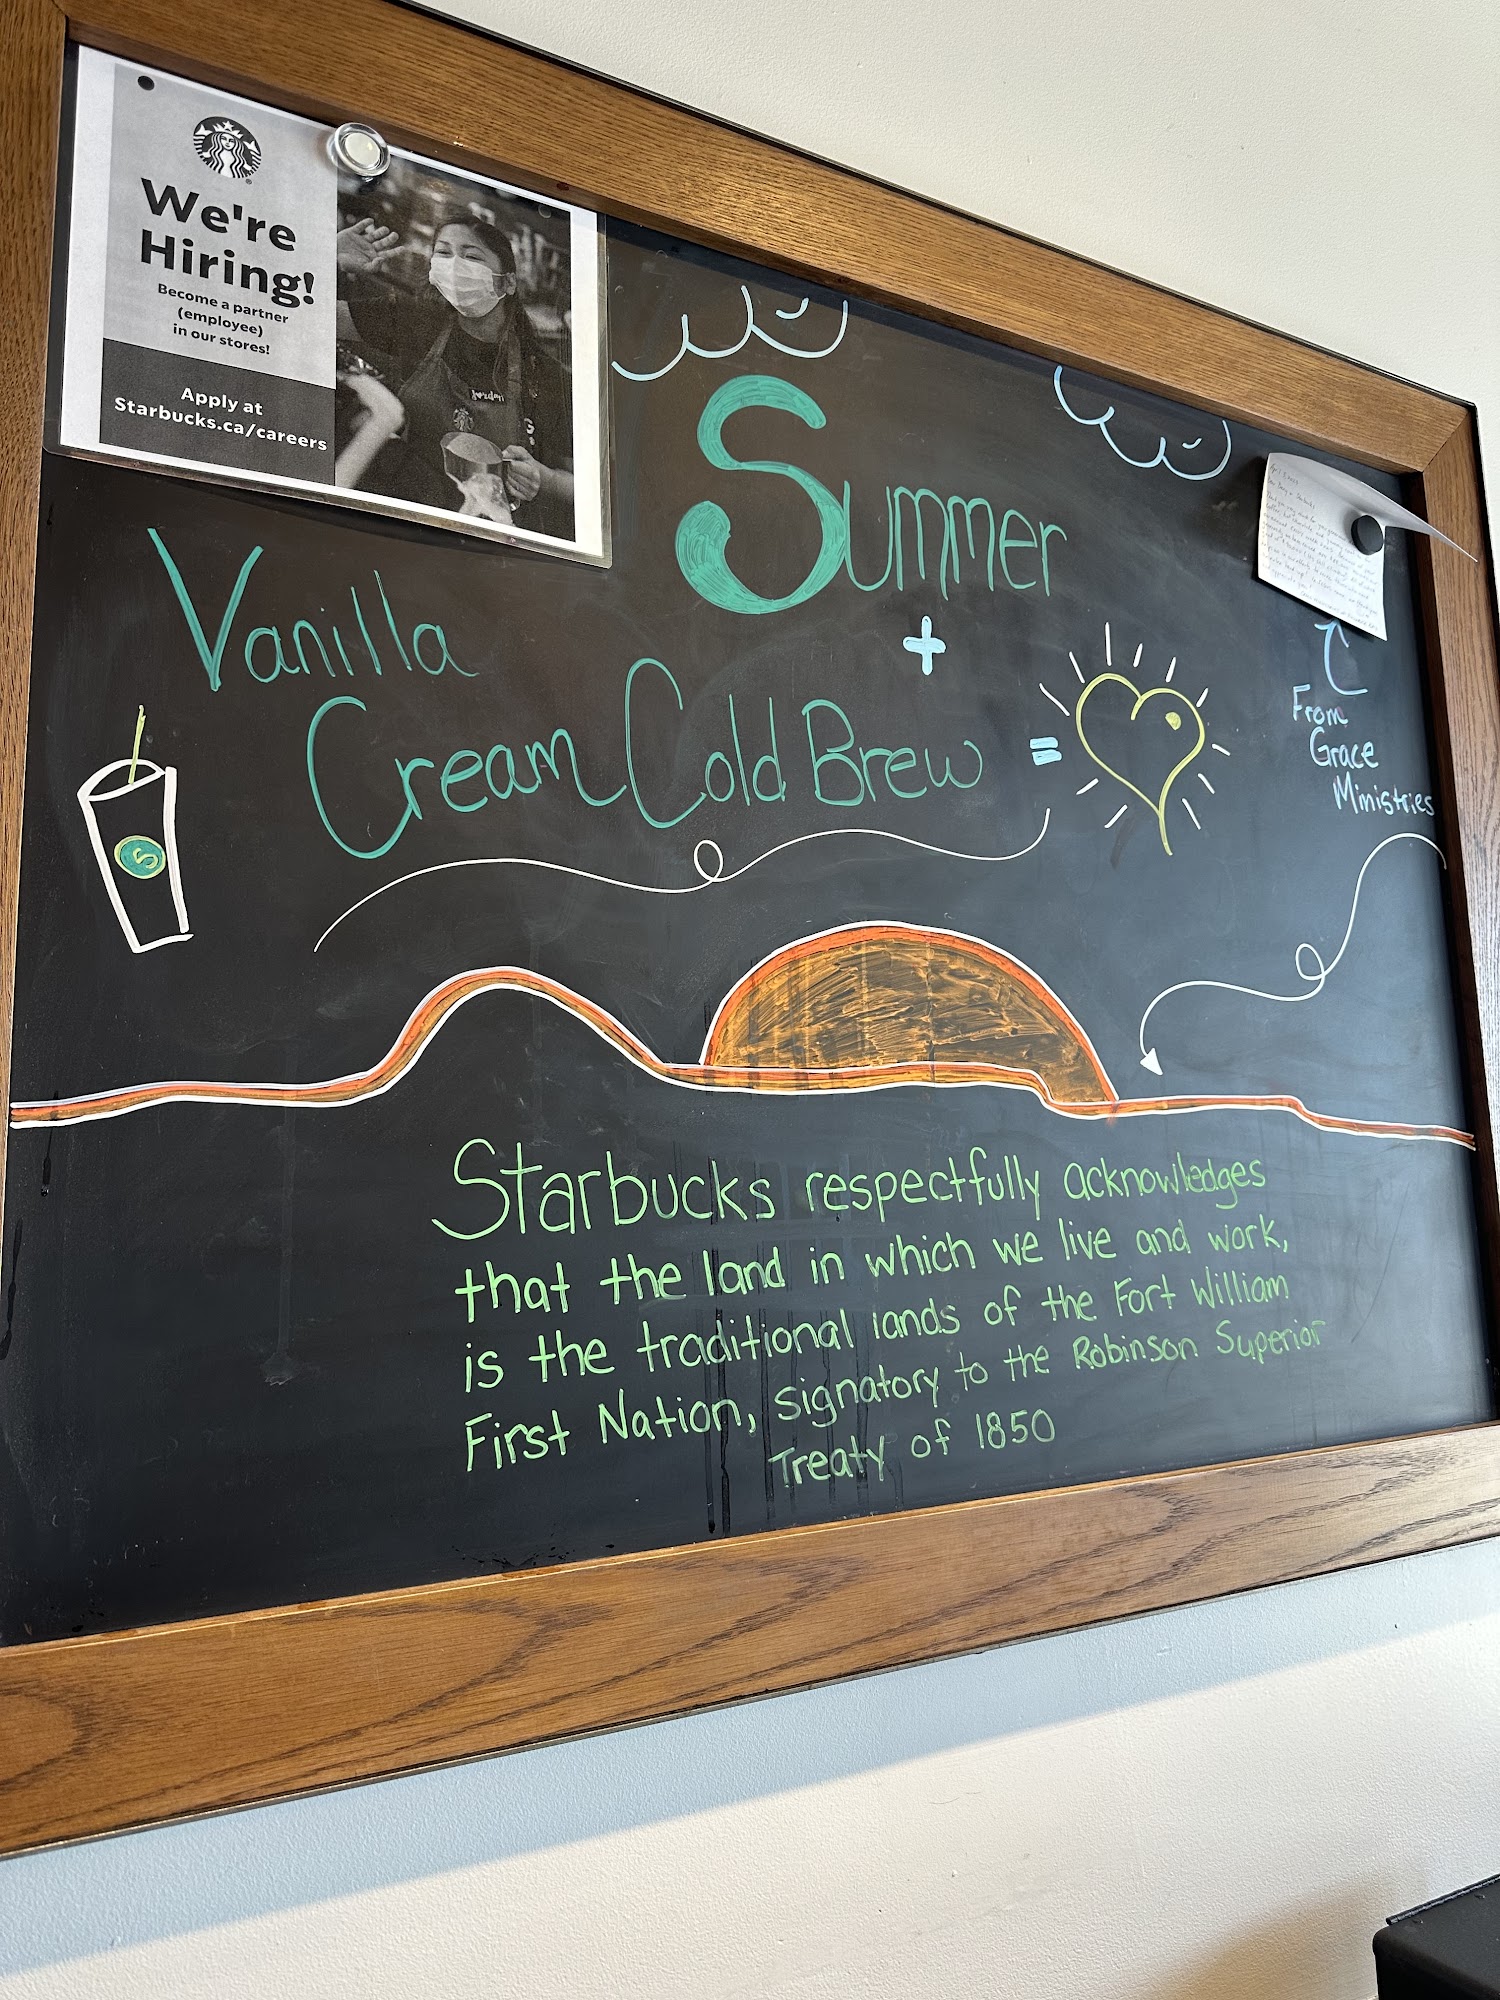 We're
Hiring!
Become a partner
(employee)
in our stores!
Apply at
Starbucks.ca/careers
Summer
+
Vanilla
Cream Cold Brew =
S
From
Grace
Ministries
Starbucks respectfully acknowledges
that the land in which we live and work,
is the traditional lands of the Fort William
First Nation, signatory to the Robinson Superior
Treaty of 1850